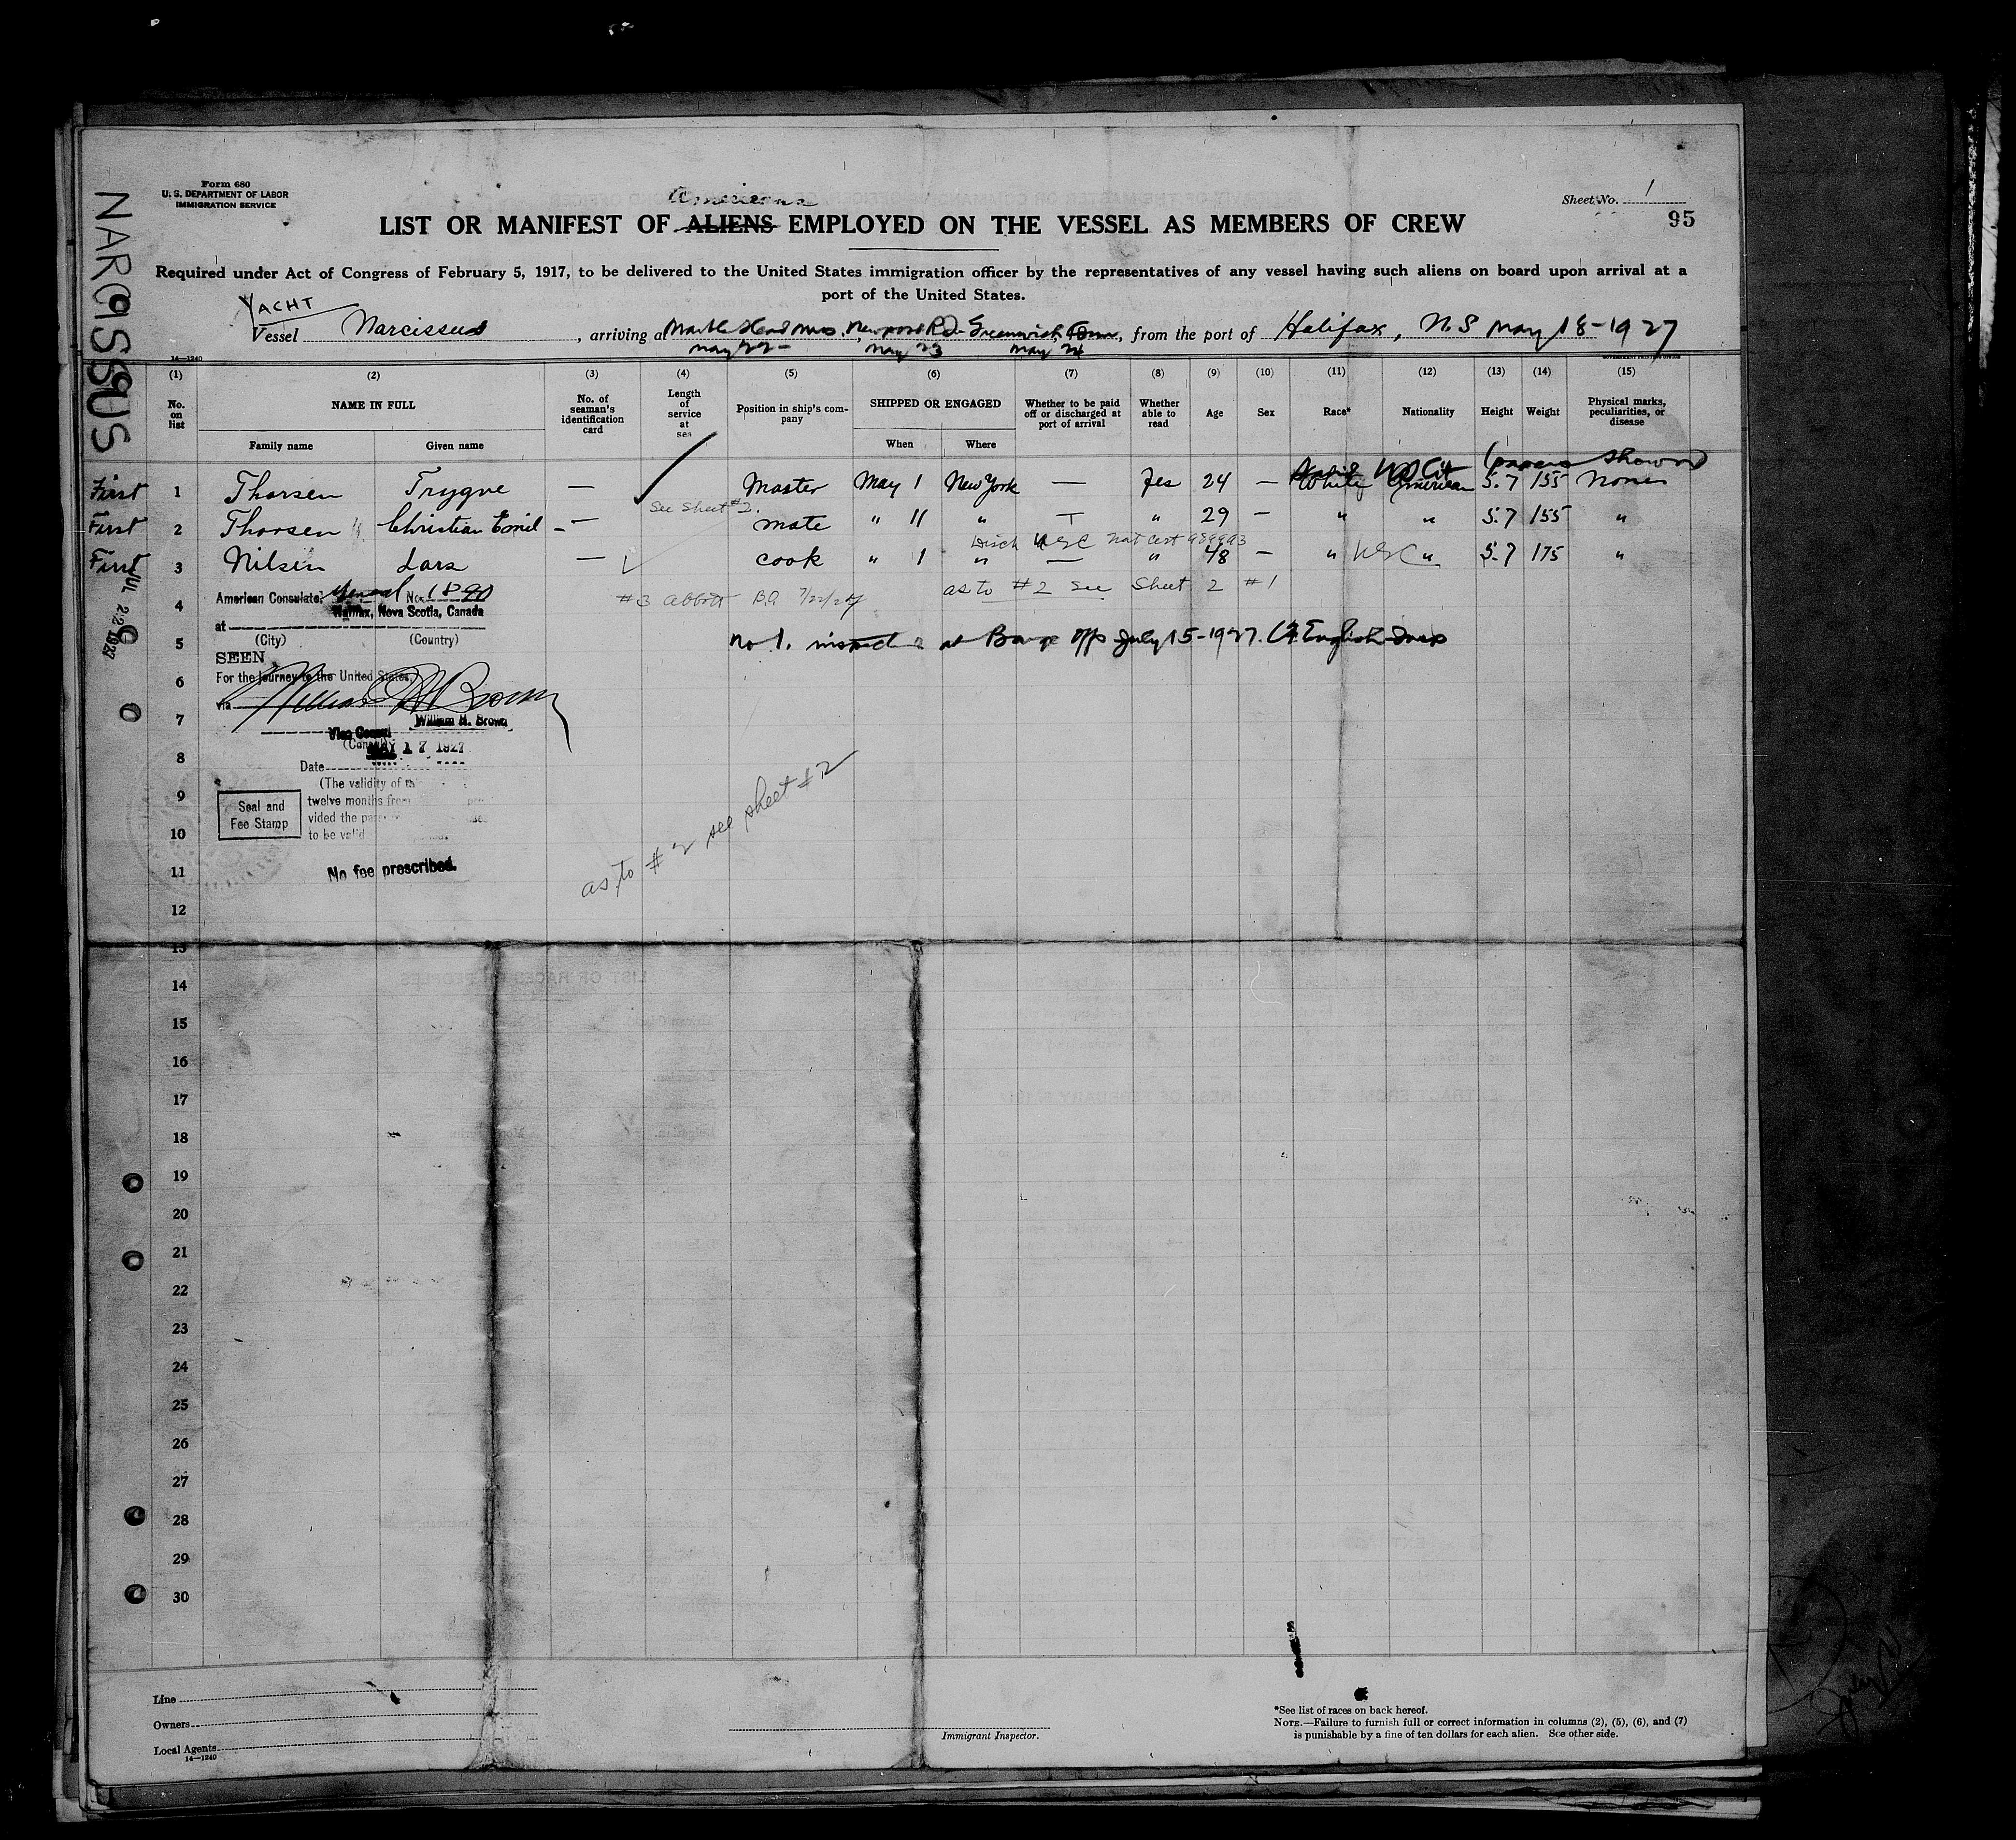 NARCISSUS
Form 680
U. S. DEPARTMENT OF LABOR
IMMIGRATION SERVICE
Sheet No. 1
95
Americans
LIST OR MANIFEST OF ALIENS EMPLOYED ON THE VESSEL AS MEMBERS OF CREW
Required under Act of Congress of February 5, 1917, to be delivered to the United States immigration officer by the representatives of any vessel having such aliens on board upon arrival at a
port of the United States.
YACHT
Vessel Narcissus, arriving at Marble Head Mass, Newport R.I. Greenwich Conn, from the port of Halifax, N.S May 18-1927
May 22- May 23 May 24
14—1240
(1) (2) (3) (4) (5) (6) (7) (8) (9) (10) (11) (12) (13) (14) (15)
No. on list NAME IN FULL No. of seaman's identification card Length of service at sea Position in ship's company SHIPPED OR ENGAGED Whether to be paid off or discharged at port of arrival Whether able to read Age Sex Race* Nationality Height Weight Physical marks, peculiarities, or disease
Family name Given name When Where
US Cit (papers shown)
First 1 Thorsen Trygve — Master May 1 New York — Yes 24 — White American 5.7 155 None
See Sheet #2.
First 2 Thorsen Christian Emil — mate " 11 " — " 29 — " " 5.7 155 "
Disch USC Nat Cert
First 3 Nilsen Lars — cook " 1 " — " 48 — " USC " 5.7 175 "
JUL 22 1927
American Consulate General No. 1890
#3 Abbott B.O 7/22/27 as to #2 see Sheet 2 #1
4 Halifax, Nova Scotia, Canada
at
(City) (Country)
5 No 1. inspected at Barge Off July 15-1927.
SEEN
For the journey to the United States,
6
via
William H. Brown
7
Vice Consul
(Consul)
MAY 17 1927
8
Date
(The validity of
9
Seal and Fee Stamp
twelve months from
vided the
10
to be valid
No fee prescribed.
11
as to #2 see sheet #2
12
13
14
15
16
17
18
19
20
21
22
23
24
25
26
27
28
29
30
Line
Owners
Local Agents
14—1240
Immigrant Inspector.
*See list of races on back hereof.
NOTE.—Failure to furnish full or correct information in columns (2), (5), (6), and (7)
is punishable by a fine of ten dollars for each alien. See other side.